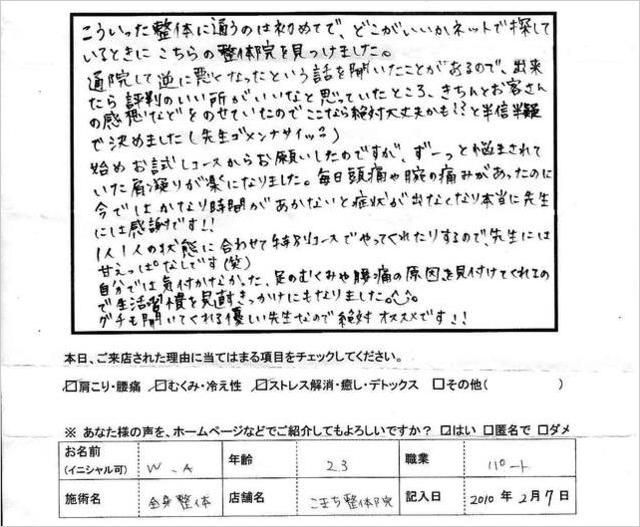 こういった整体に通うのは初めてで、どこがいいかネットで探して
いるときにこちらの整体院を見つけました。
通院して逆に悪くなったという話を聞いたことがあるので、出来
たら評判のいい所がいいなと思っていたところ、きちんとお客さん
の感想などをのせていたのでここなら絶対大丈夫かも!?と半信半疑
で決めました(先生ゴメンナサイッ?)
始めお試しコースからお願いしたのですが、ずーっと悩まされて
いた肩凝りが楽になりました。毎日頭痛や腕の痛みがあったのに
今ではかなり時間があかないと症状が出なくなり本当に先生
には感謝です!!
1人1人の状態に合わせて特別コースでやってくれたりするので、先生には
甘えっぱなしです(笑)
自分では気付かなかった、足のむくみや腰痛の原因を見付けてくれるの
で生活習慣を見直すきっかけにもなりました。
グチも聞いてくれる優しい先生なので絶対オススメです!!
本日、ご来店された理由に当てはまる項目をチェックしてください。
☑肩こり・腰痛 ☑むくみ・冷え性 ☑ストレス解消・癒し・デトックス □その他( )
※ あなた様の声を、ホームページなどでご紹介してもよろしいですか? ☑はい □匿名で □ダメ
お名前 (イニシャル可) W.A 年齢 23 職業 パート
施術名 全身整体 店舗名 こまち整体院 記入日 2010年2月7日